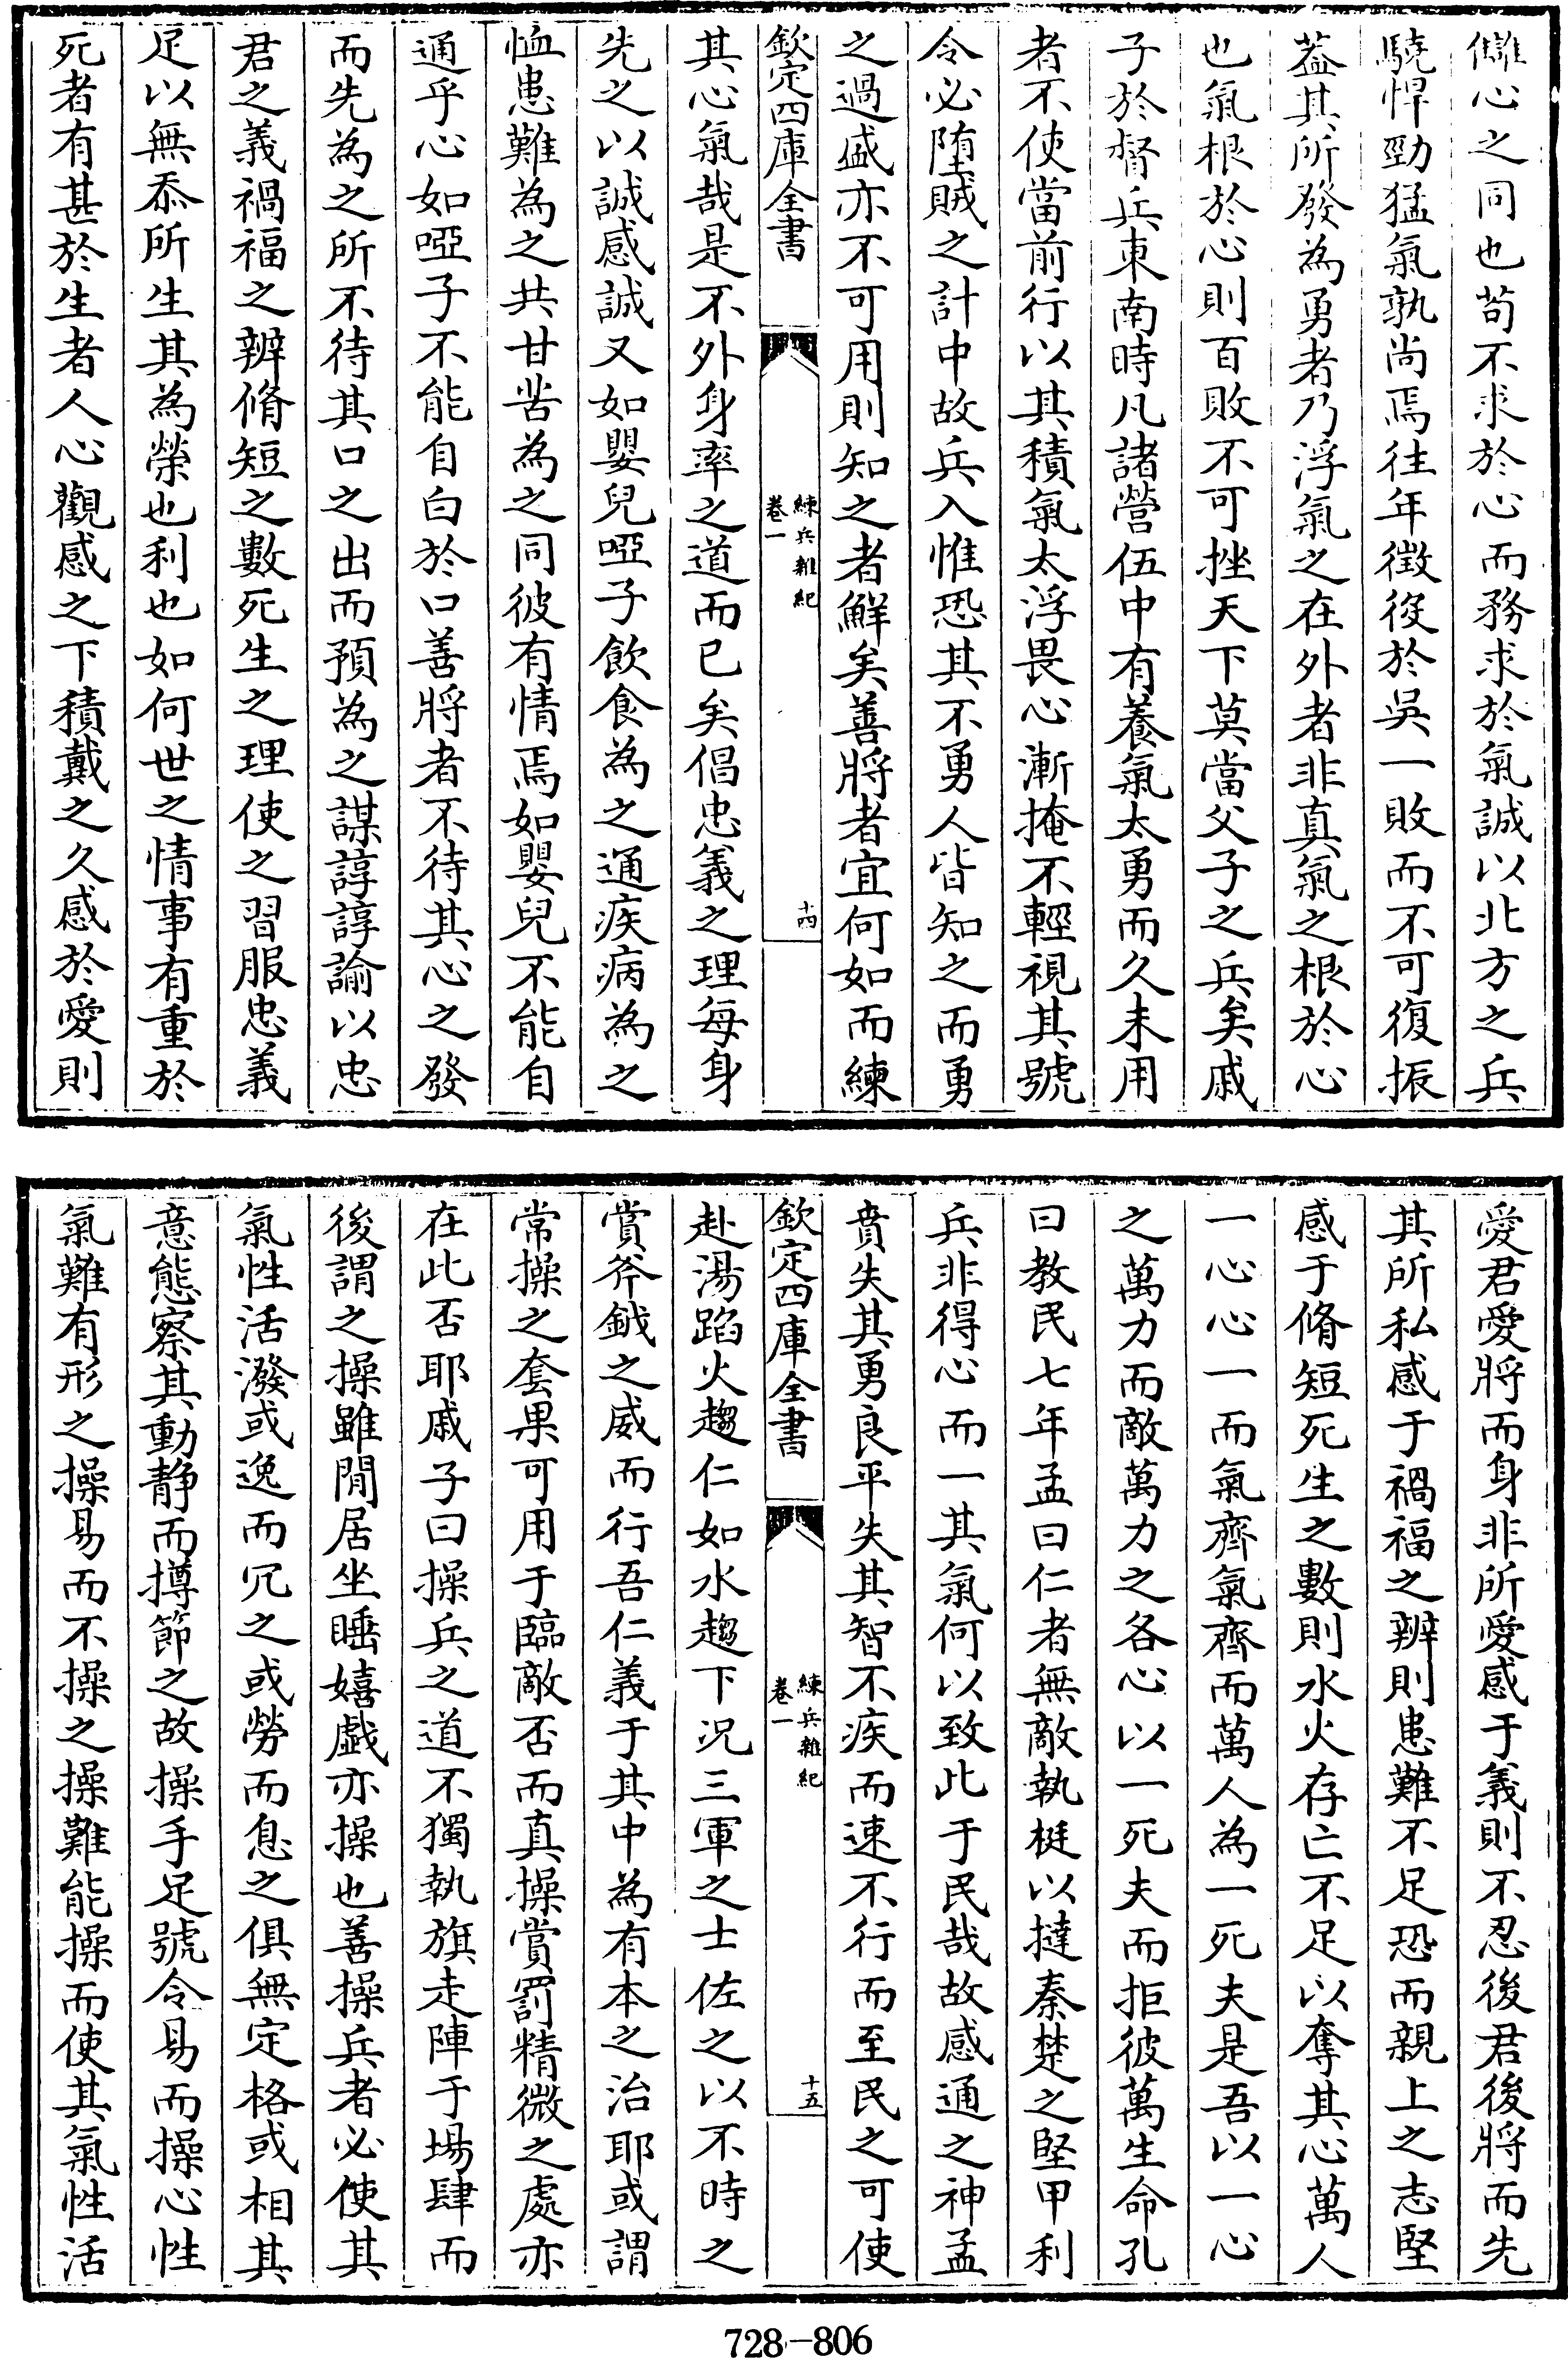 讎心之同也苟不求於心而務求於氣誠以北方之兵
驍悍勁猛氣孰尚焉往年徵役於吳一敗而不可復振
葢其所發為勇者乃浮氣之在外者非真氣之根於心
也氣根於心則百敗不可挫天下莫當父子之兵矣戚
子於督兵東南時凡諸營伍中有養氣太勇而久未用
者不使當前行以其積氣太浮畏心漸掩不輕視其號
令必墮賊之計中故兵入惟恐其不勇人皆知之而勇
之過盛亦不可用則知之者鮮矣善將者宜何如而練
欽定四庫全書
練兵雜紀
卷一
十四
其心氣哉是不外身率之道而已矣倡忠義之理每身
先之以誠感誠又如嬰兒啞子飲食為之通疾病為之
恤患難為之共甘苦為之同彼有情焉如嬰兒不能自
通乎心如啞子不能自白於口善將者不待其心之發
而先為之所不待其口之出而預為之謀諄諄諭以忠
君之義禍福之辨脩短之數死生之理使之習服忠義
足以無忝所生其為榮也利也如何世之情事有重於
死者有甚於生者人心觀感之下積戴之久感於愛則
愛君愛將而身非所愛感于義則不忍後君後將而先
其所私感于禍福之辨則患難不足恐而親上之志堅
感于脩短死生之數則水火存亡不足以奪其心萬人
一心心一而氣齊氣齊而萬人為一死夫是吾以一心
之萬力而敵萬力之各心以一死夫而拒彼萬生命孔
曰教民七年孟曰仁者無敵執梃以撻秦楚之堅甲利
兵非得心而一其氣何以致此于民哉故感通之神孟
賁失其勇良平失其智不疾而速不行而至民之可使
欽定四庫全書
練兵雜紀
卷一
十五
赴湯蹈火趨仁如水趨下况三軍之士佐之以不時之
賞斧鉞之威而行吾仁義于其中為有本之治耶或謂
常操之套果可用于臨敵否而真操賞罰精微之處亦
在此否耶戚子曰操兵之道不獨執旗走陣于場肆而
後謂之操雖閒居坐睡嬉戯亦操也善操兵者必使其
氣性活潑或逸而冗之或勞而息之俱無定格或相其
意態察其動静而撙節之故操手足號令易而操心性
氣難有形之操易而不操之操難能操而使其氣性活
728-806